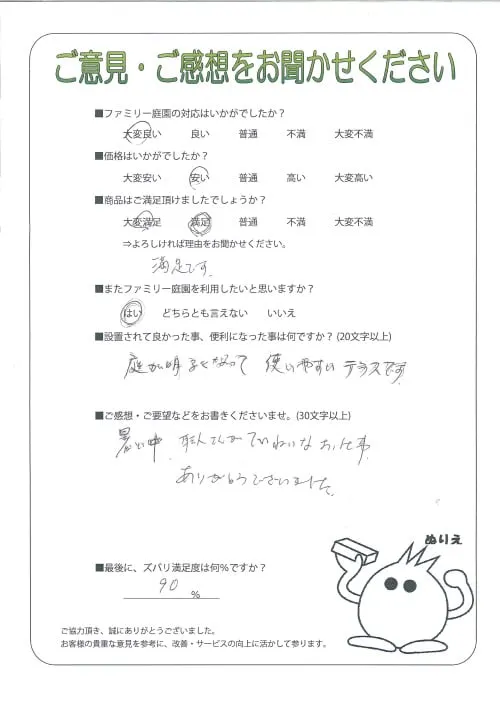 ご意見・ご感想をお聞かせください
■ファミリー庭園の対応はいかがでしたか？
大変良い 良い 普通 不満 大変不満
■価格はいかがでしたか？
大変安い 安い 普通 高い 大変高い
■商品はご満足頂けましたでしょうか？
大変満足 満足 普通 不満 大変不満
⇒よろしければ理由をお聞かせください。
満足です。
■またファミリー庭園を利用したいと思いますか？
はい どちらとも言えない いいえ
■設置されて良かった事、便利になった事は何ですか？(20文字以上)
庭が明るくなって 使いやすい テラスです
■ご感想・ご要望などをお書きくださいませ。(30文字以上)
暑い中、職人さんがていねいなお仕事
ありがとうございました。
ぬりえ
■最後に、ズバリ満足度は何％ですか？
90 ％
ご協力頂き、誠にありがとうございました。
お客様の貴重な意見を参考に、改善・サービスの向上に活かして参ります。